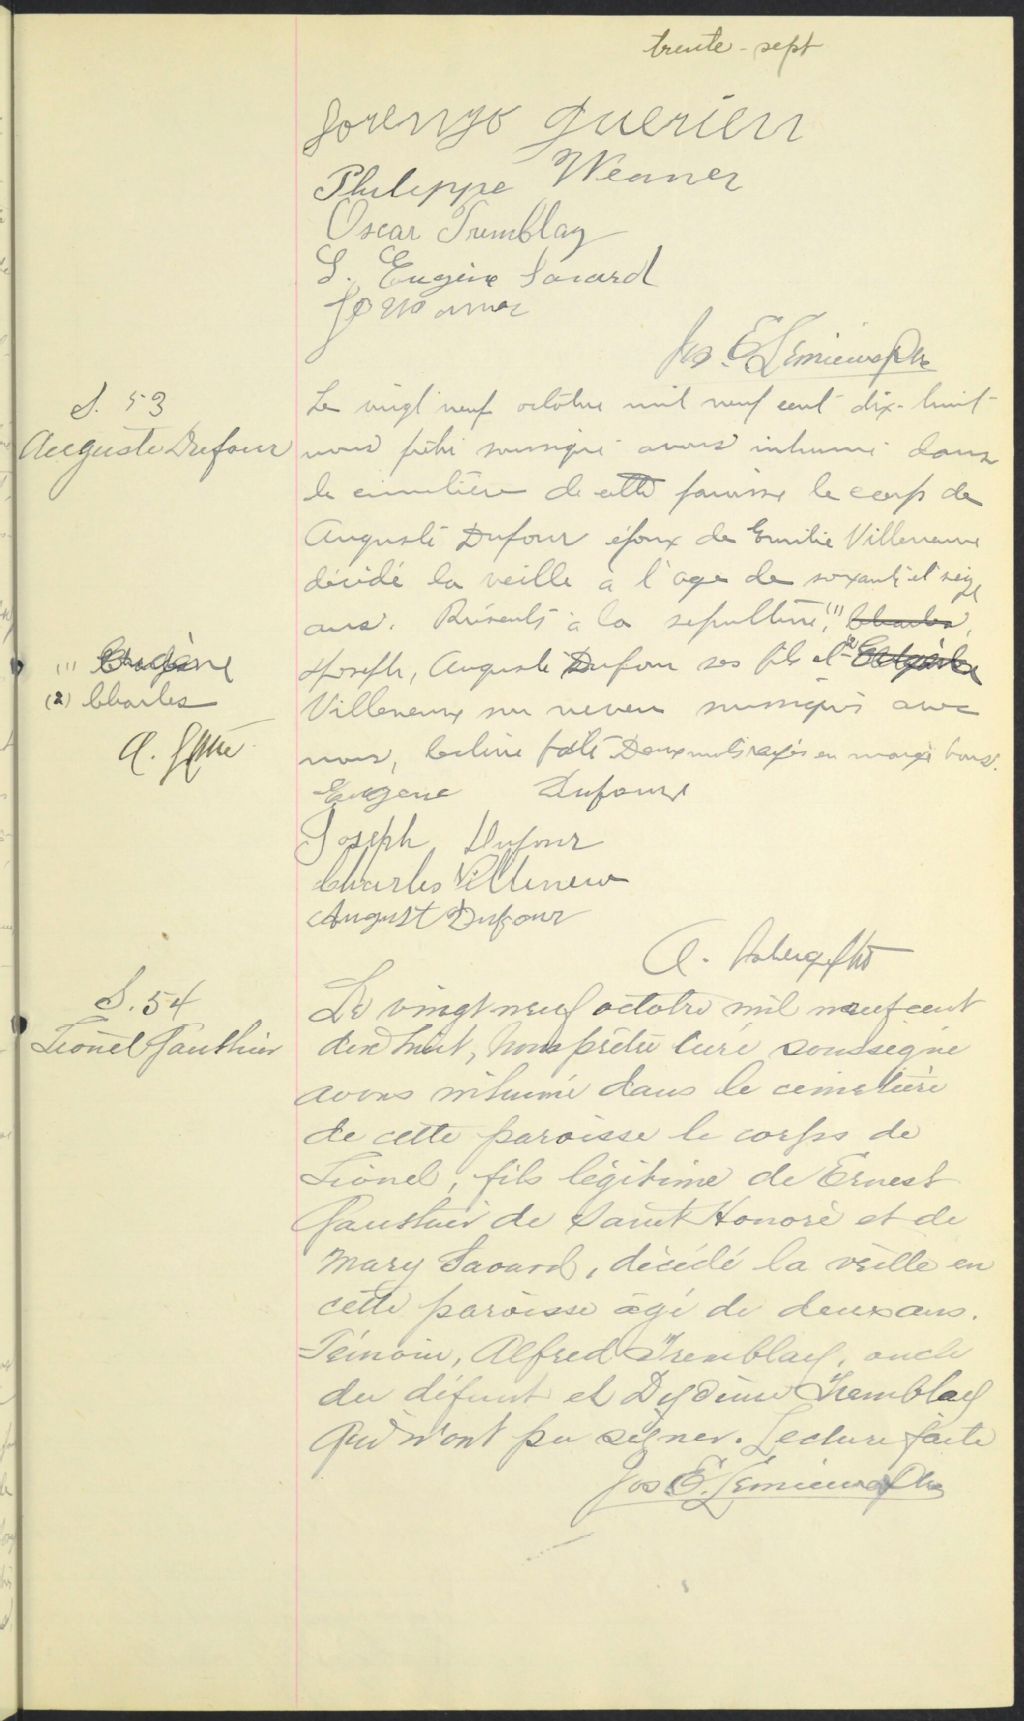 trente-sept
Lorenzo Guerien
Philippe Weaner
Oscar Tremblay
S. Eugène Savard
Jos E Lemieux Ptre
S. 53
Auguste Dufour
Le vingt neuf octobre mil neuf cent dix-huit
nous prêtre soussigné avons inhumé dans
le cimetière de cette paroisse le corps de
Auguste Dufour époux de Emilie Villeneuve
décédé la veille a l'age de soixante et seize
ans. Présents à la sepulture, (1) Charles,
Joseph, Auguste Dufour ses fils et (2)
Villeneuve son neveu soussignés avec
nous, lecture faite Deux mots rayés en marge bons.
(1) Eugène
(2) Charles
Eugene Dufour
Joseph Dufour
Charles Villeneuv
August Dufour
S. 54
Lionel Gauthier
Le vingt neuf octobre mil neuf cent
dix huit, Nous prêtre curé soussigné
avons inhumé dans le cimetière
de cette paroisse le corps de
Lionel, fils légitime de Ernest
Gauthier de Saint Honoré et de
Mary Savard, décédé la veille en
cette paroisse agé de deux ans.
Témoin, Alfred Tremblay, oncle
du défunt et Dydime Tremblay
qui n'ont pu signer. Lecture faite
Jos E. Lemieux Ptre